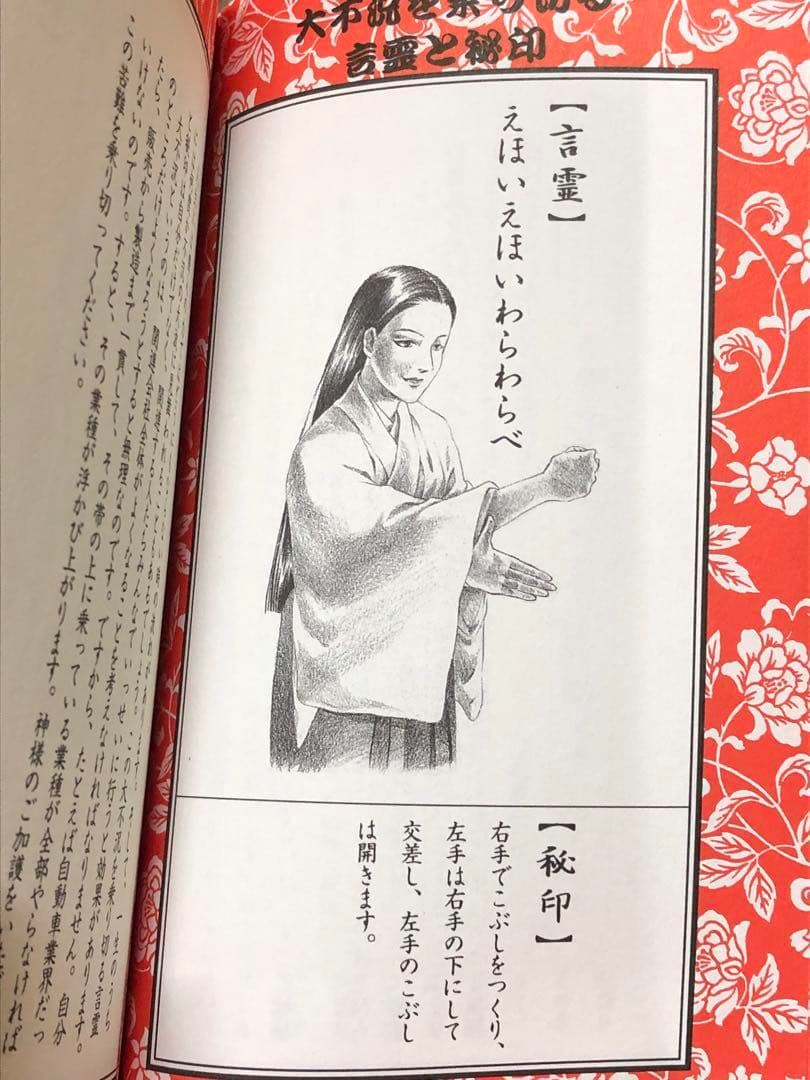 大不況を乗り切る
言霊と秘印
【言霊】
えほいえほいわらわらべ
【秘印】
右手でこぶしをつくり、
左手は右手の下にして
交差し、左手のこぶし
は開きます。
関連会社全体がよくなることを考えなければなりません。自分
のところだけよくなろうとすると無理なのです。ですから、たとえば自動車業界だっ
たら、販売から製造まで一貫して、その帯の上に乗っている業種が全部やらなければ
いけないのです。すると、その業種が浮かび上がります。神様のご加護をい
この苦難を乗り切ってください。